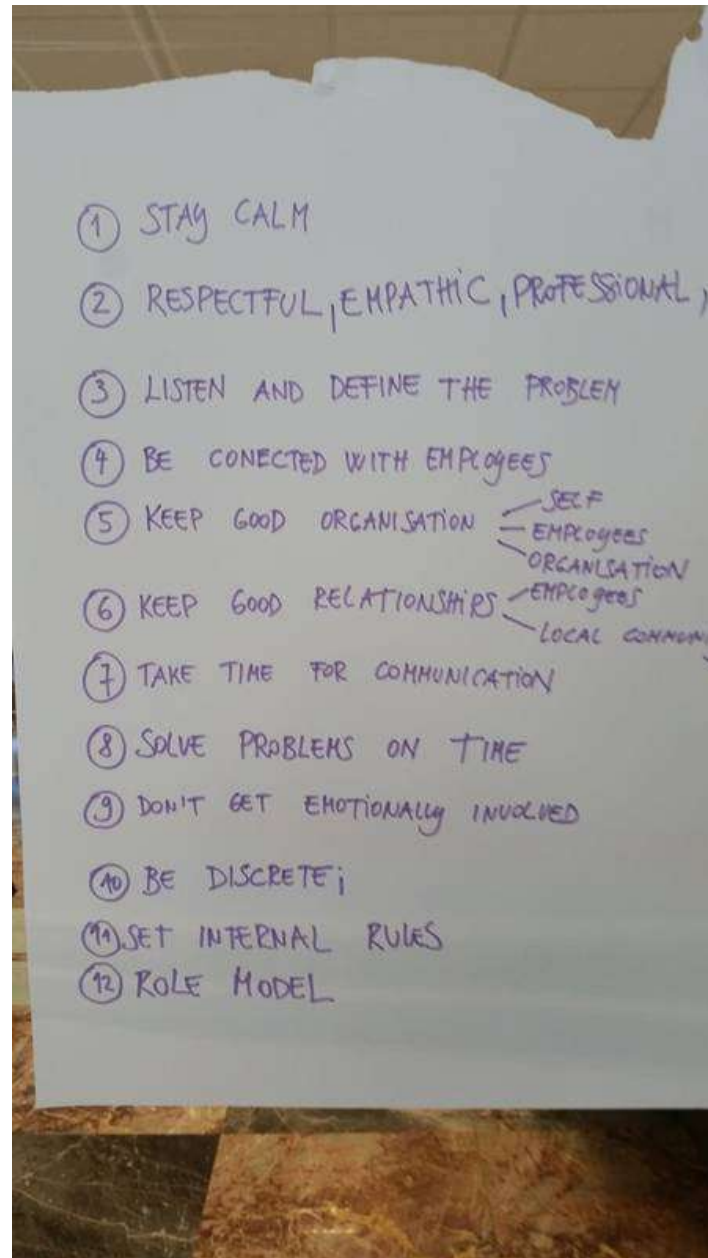 1 STAY CALM
2 RESPECTFUL, EMPATHIC, PROFESSIONAL,
3 LISTEN AND DEFINE THE PROBLEM
4 BE CONECTED WITH EMPLOYEES
5 KEEP GOOD ORGANISATION
SELF
EMPLOYEES
ORGANISATION
6 KEEP GOOD RELATIONSHIPS
EMPLOYEES
LOCAL
7 TAKE TIME FOR COMMUNICATION
8 SOLVE PROBLEMS ON TIME
9 DON'T GET EMOTIONALLY INVOLVED
10 BE DISCRETE;
11 SET INTERNAL RULES
12 ROLE MODEL